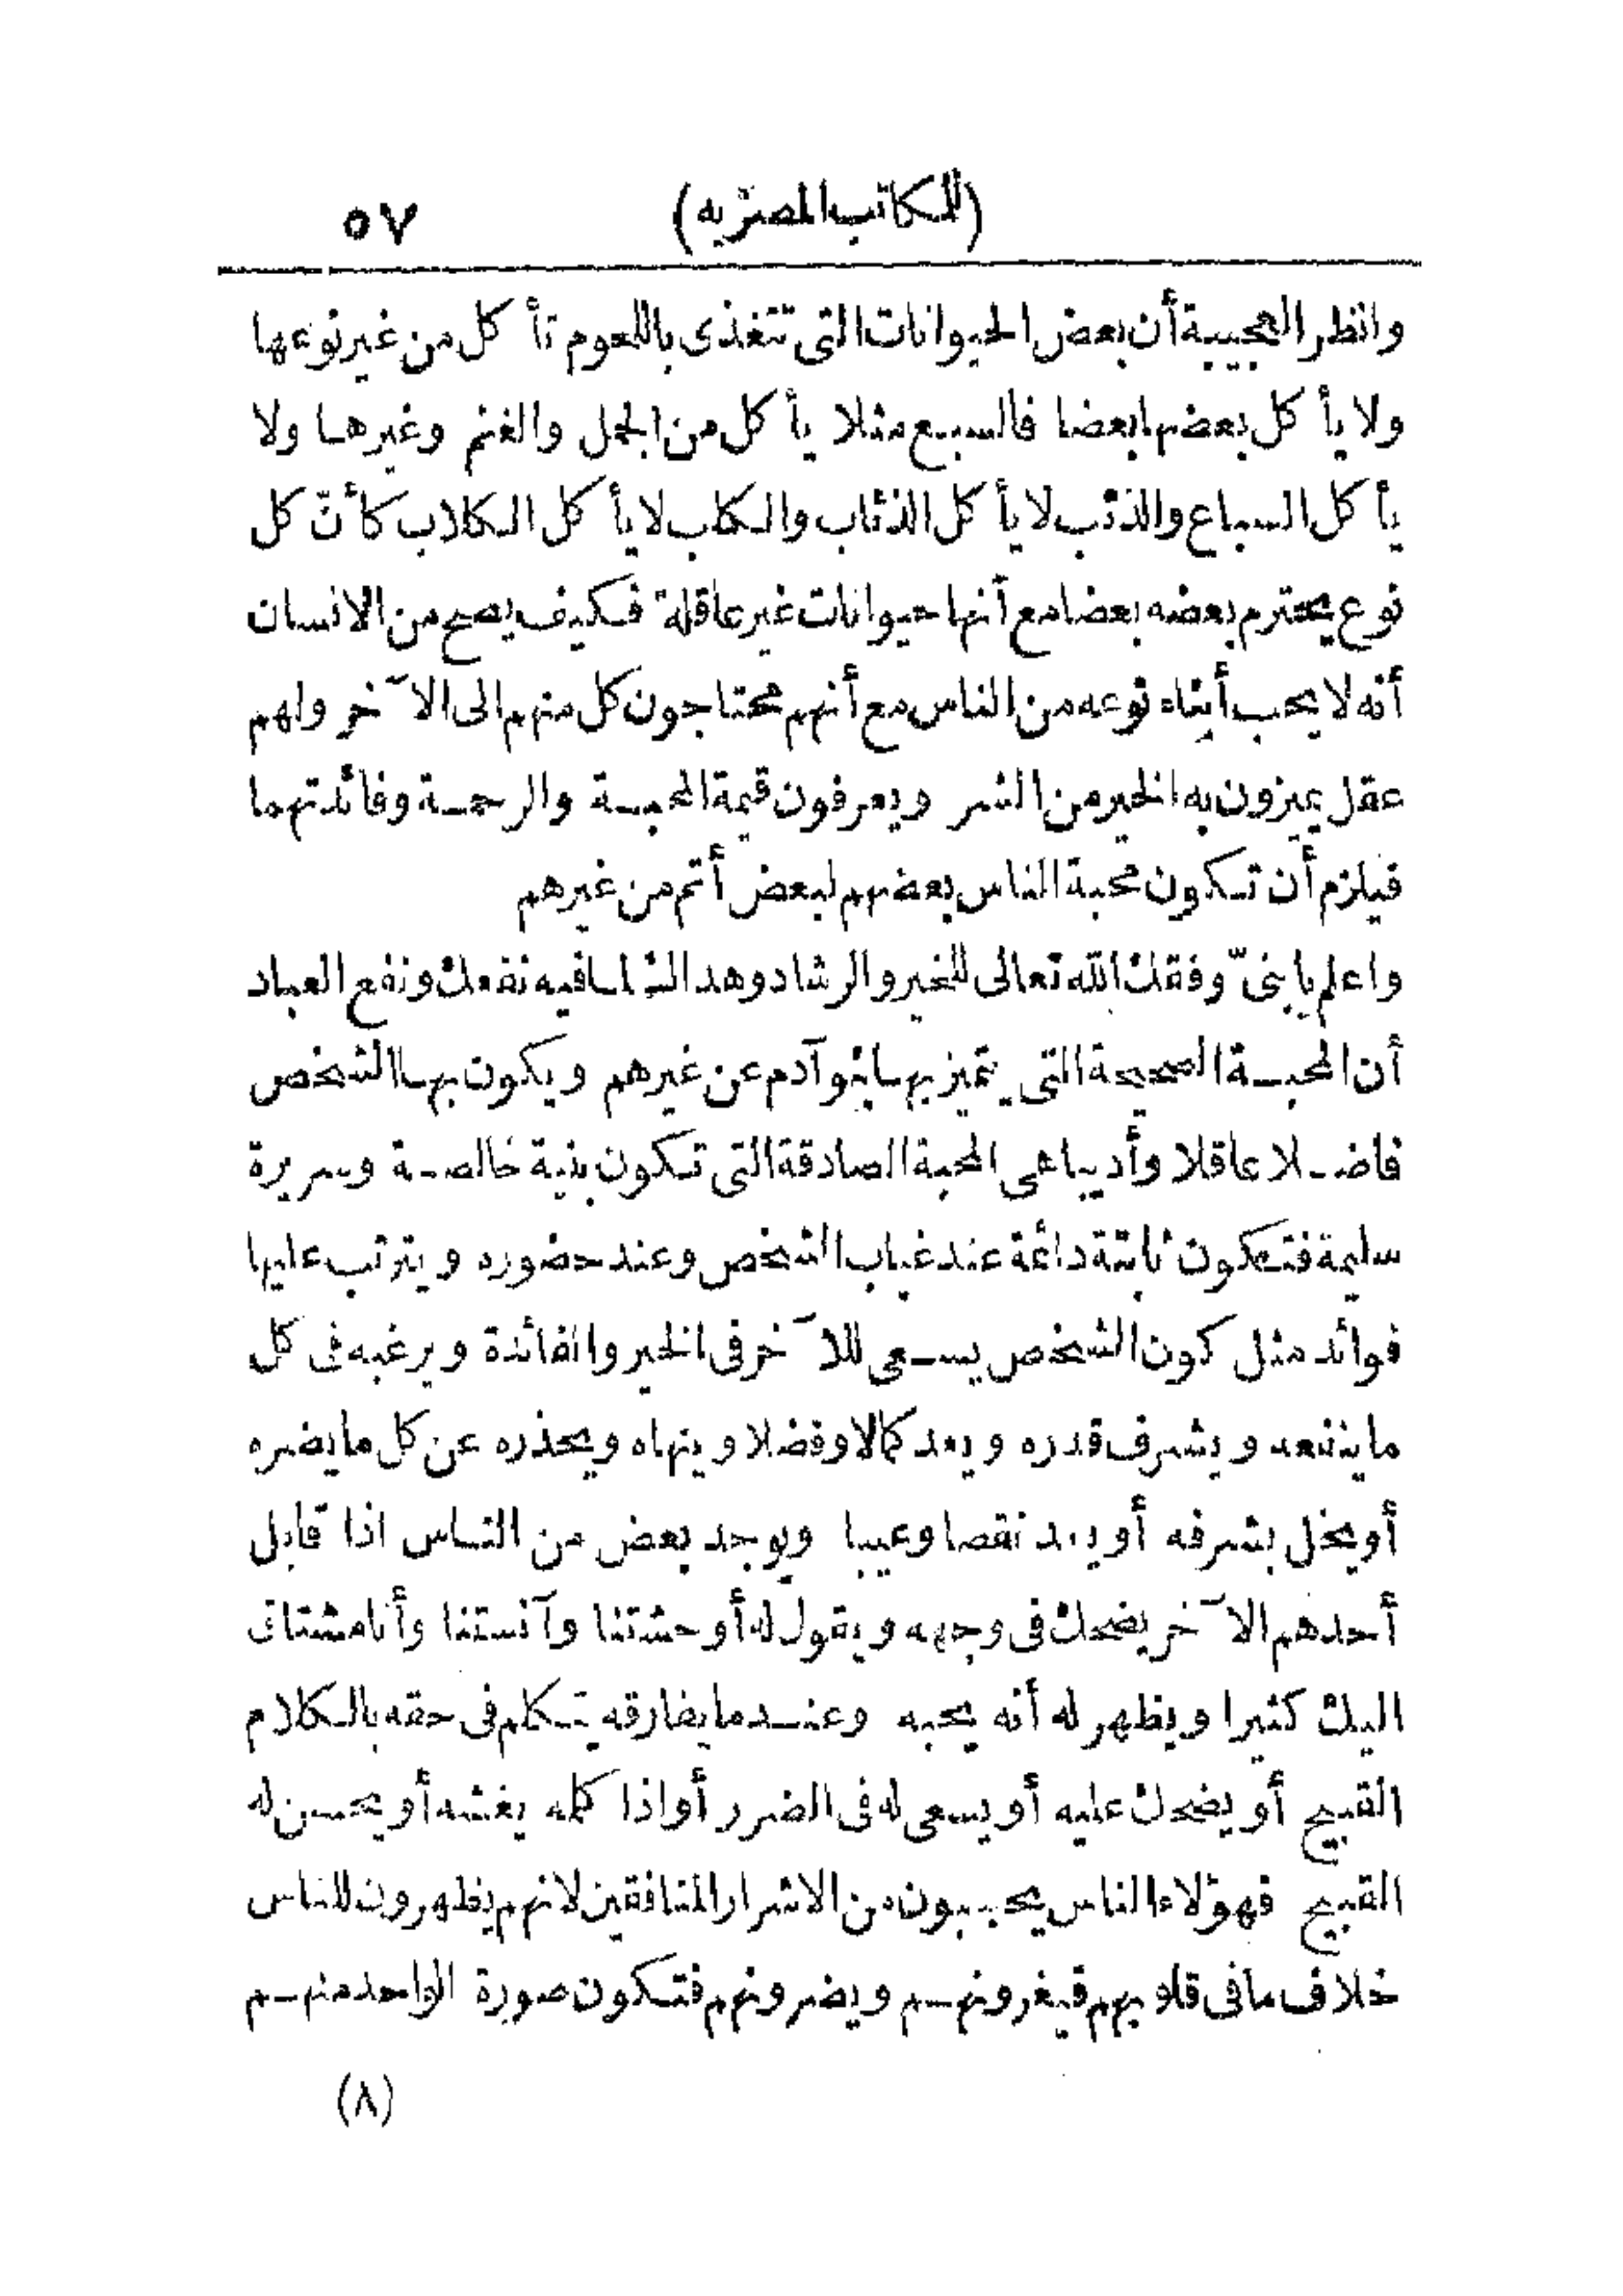 (للمكاتب المصرّيه) ٥٧
وانظر العجيبة أن بعض الحيوانات التى تتغذى باللحوم تأكل من غير نوعها
ولا يأكل بعضها بعضا فالسبع مثلا يأكل من الجمل والغنم وغيرها ولا
يأكل السباع والذئب لا يأكل الذئاب والكلب لا يأكل الكلاب كأنّ كل
نوع يحترم بعضه بعضا مع أنها حيوانات غير عاقلة فكيف يصح من الانسان
أنه لا يحب أبناء نوعه من الناس مع أنهم محتاجون كل منهم الى الآخر ولهم
عقل يميزون به الخير من الشر ويعرفون قيمة المحبة والرحمة وفائدتهما
فيلزم أن تكون محبة الناس بعضهم لبعض أتم من غيرهم
واعلم يا بنىّ وفقك الله تعالى للخير والرشاد وهداك لما فيه نفعك ونفع العباد
أن المحبة الصحيحة التى يتميز بها بنو آدم عن غيرهم ويكون بها الشخص
فاضلا عاقلا وأديبا هى المحبة الصادقة التى تكون بنية خالصة وسريرة
سليمة فتكون ثابتة دائمة عند غياب الشخص وعند حضوره ويترتب عليها
فوائد مثل كون الشخص يسعى للآخر فى الخير والفائدة ويرغبه فى كل
ما ينفعه ويشرف قدره ويعد كمالا وفضلا وينهاه ويحذره عن كل ما يضره
أو يخل بشرفه أو يعد نقصا وعيبا ويوجد بعض من الناس اذا قابل
أحدهم الآخر يضحك فى وجهه ويقول له أوحشتنا وآنستنا وأنا مشتاق
اليك كثيرا ويظهر له أنه يحبه وعندما يفارقه يتكلم فى حقه بالكلام
القبيح أو يضحك عليه أو يسعى له فى الضرر أو اذا كله يغشه أو يحسن له
القبيح فهؤلاء الناس يحسبون من الاشرار المنافقين لانهم يظهرون للناس
خلاف ما فى قلوبهم فيغرونهم ويضرونهم فتكون صورة الواحد منهم
(٨)